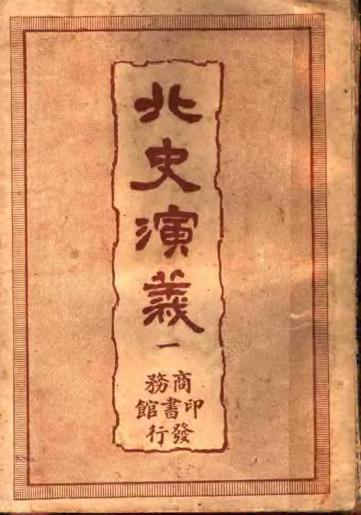 北史演義
一
商務
印書館
發行